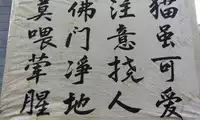 猫虽可爱
注意挠人
佛门净地
莫喂荤腥